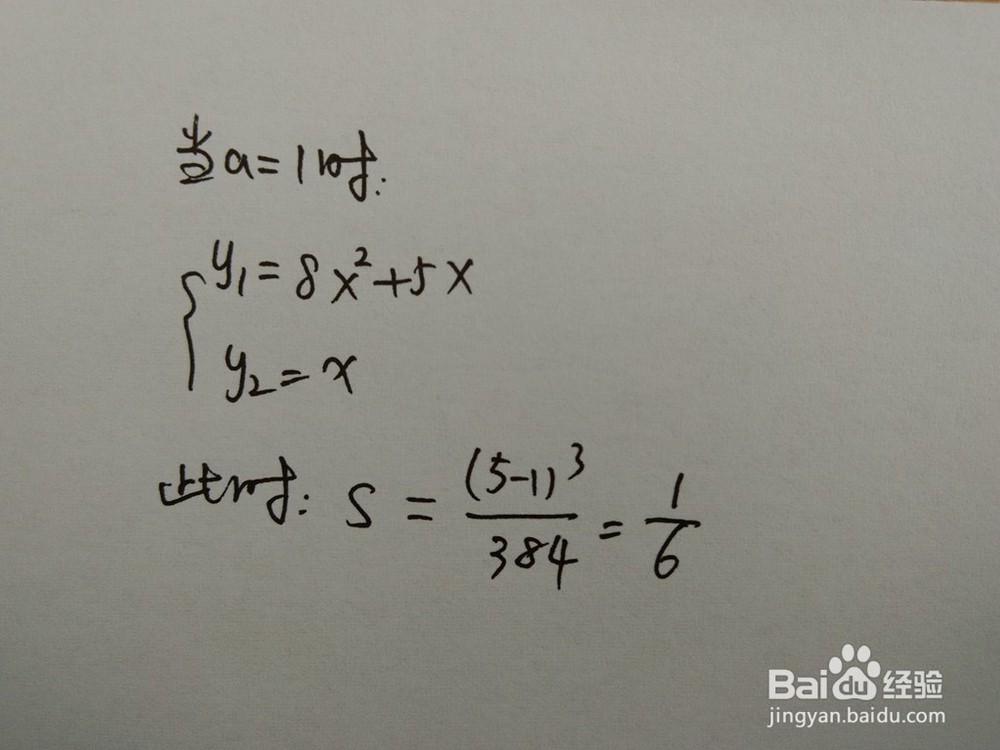 当a=1时:
y₁=8x²+5x
y₂=x
此时: S = (5-1)³/384 = 1/6
Baidu经验
jingyan.baidu.com